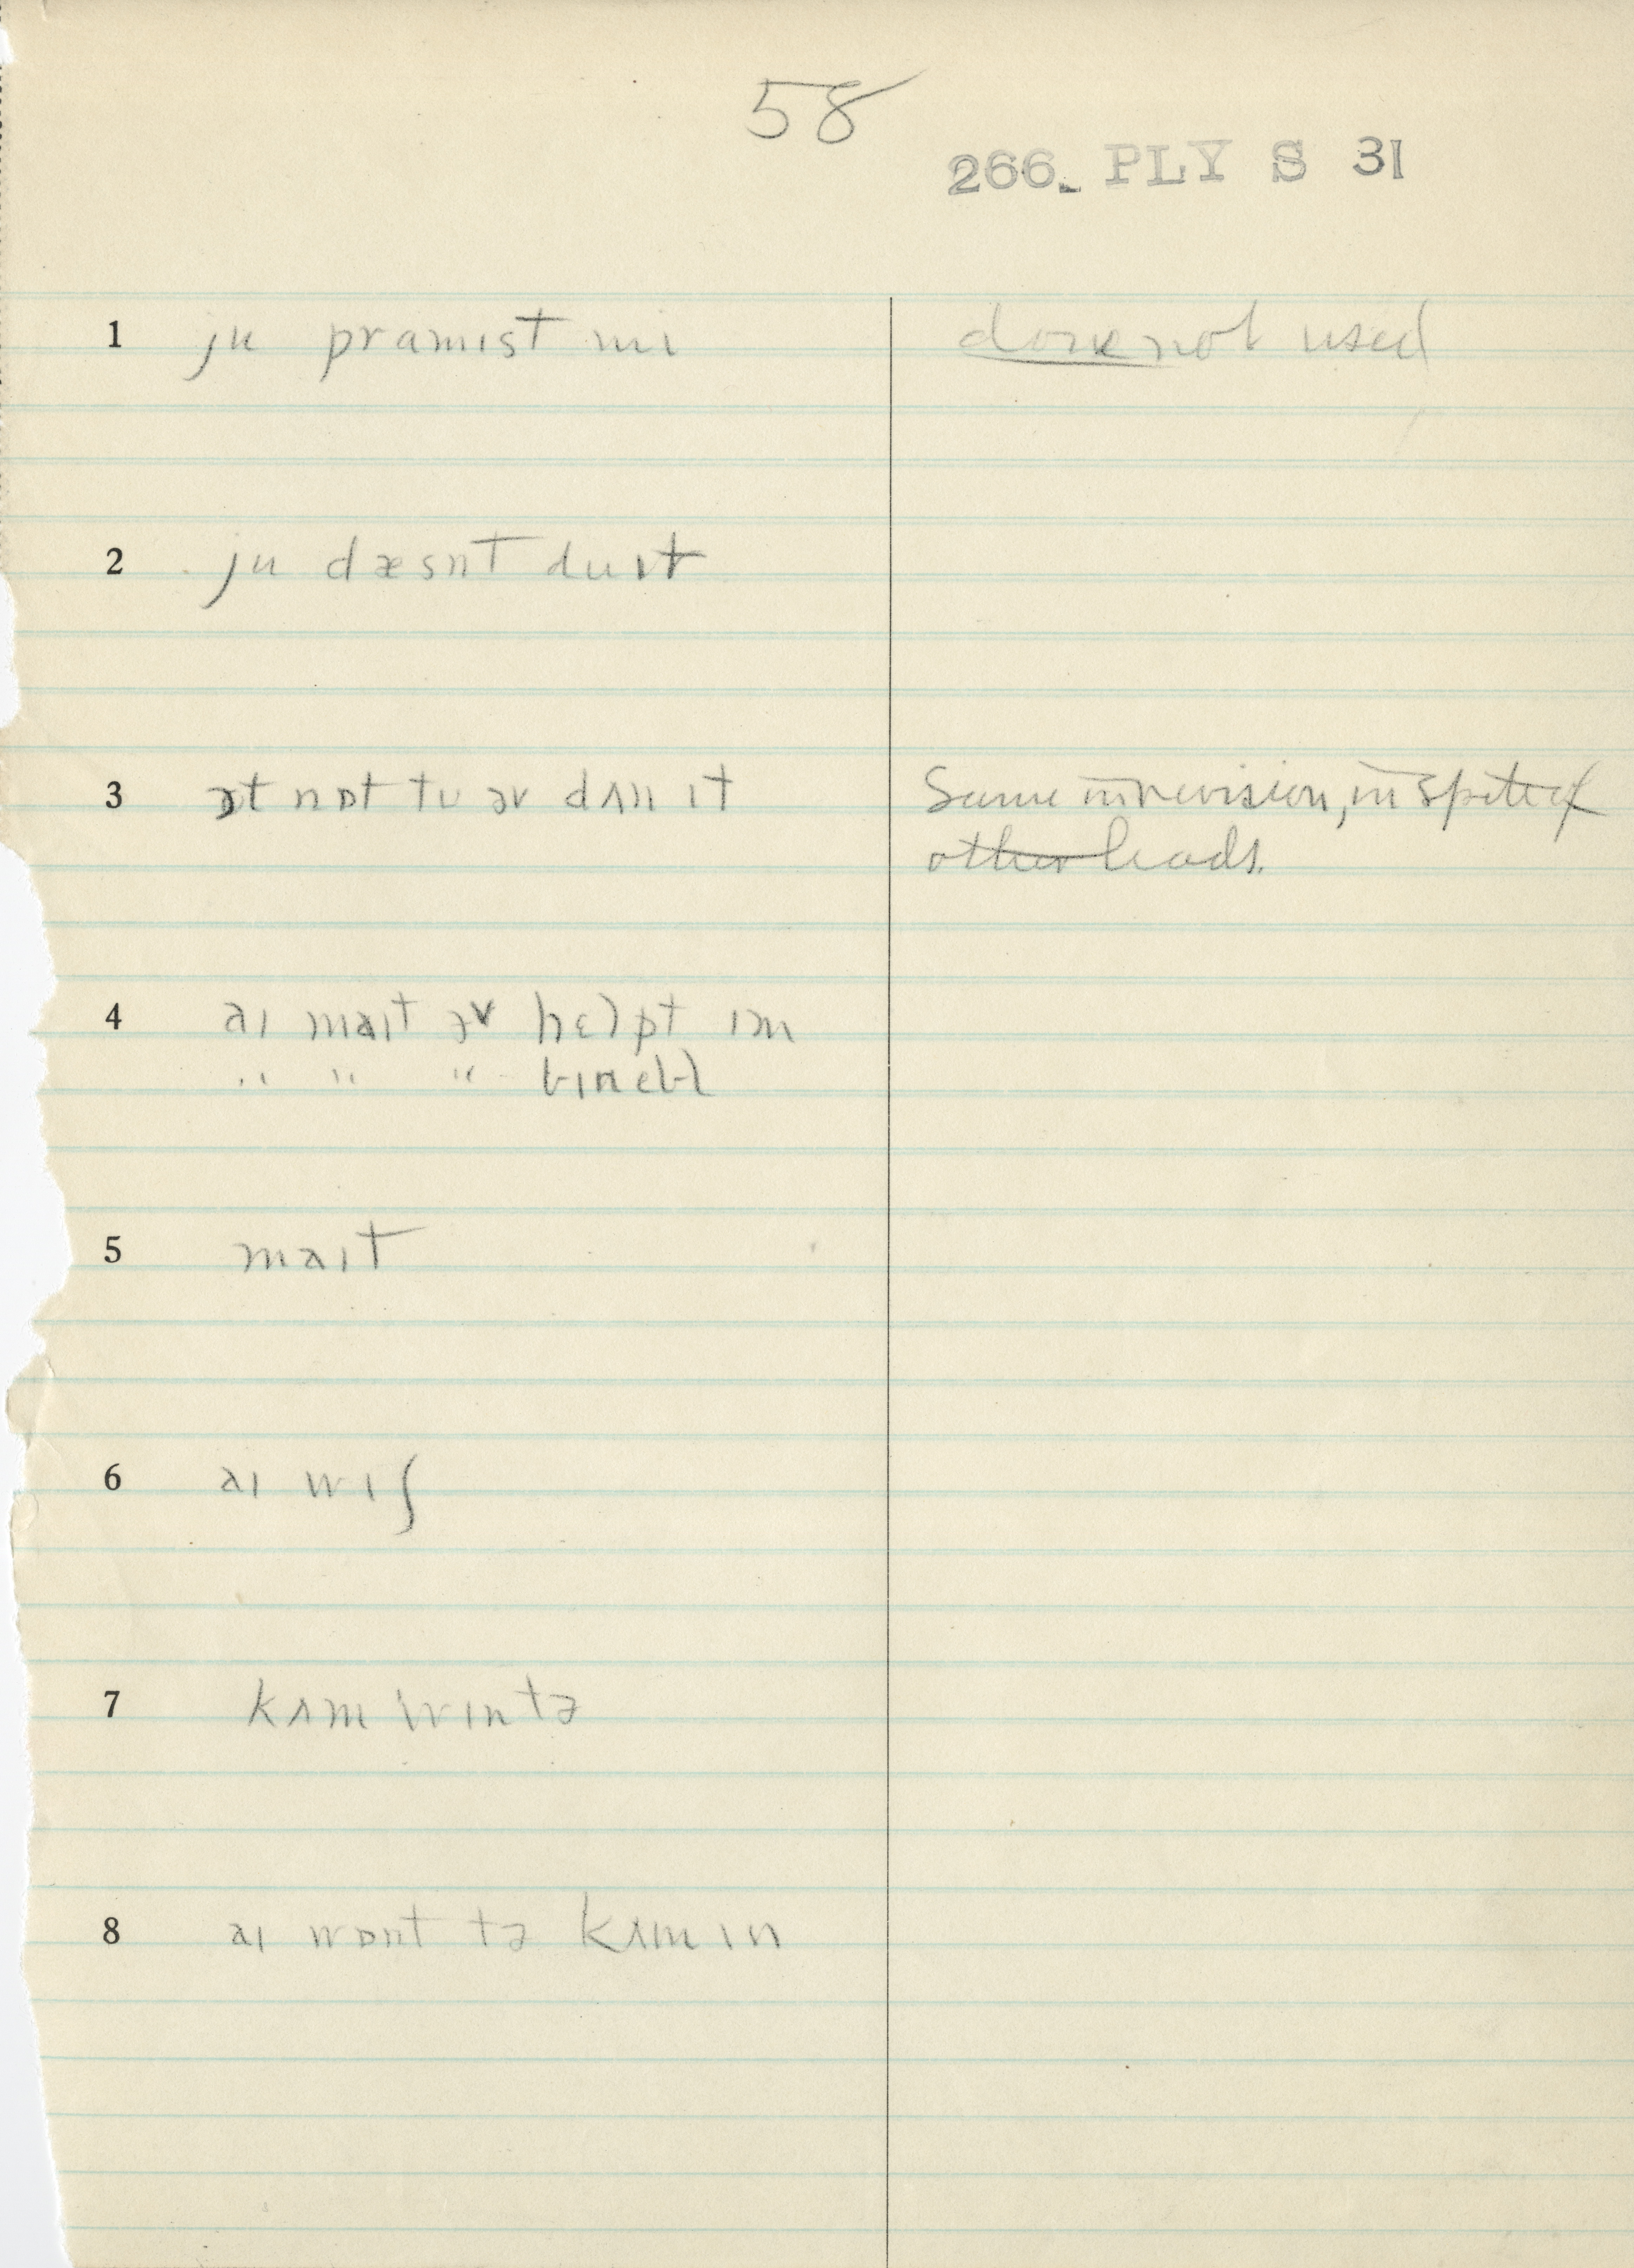 58
266. PLY S 31
1 ju pramɪst mi done not used
2 ju dæsnt du ɪt
3 ɔt nɒt tu əv dʌn ɪt Same in revision, in spite of
other leads.
4 aɪ maɪt əv hɛlpt ɪm
" " "
5 maɪt
6 aɪ wɪʃ
7 kʌm wɪn tə
8 aɪ wɒnt tə kʌm ɪn